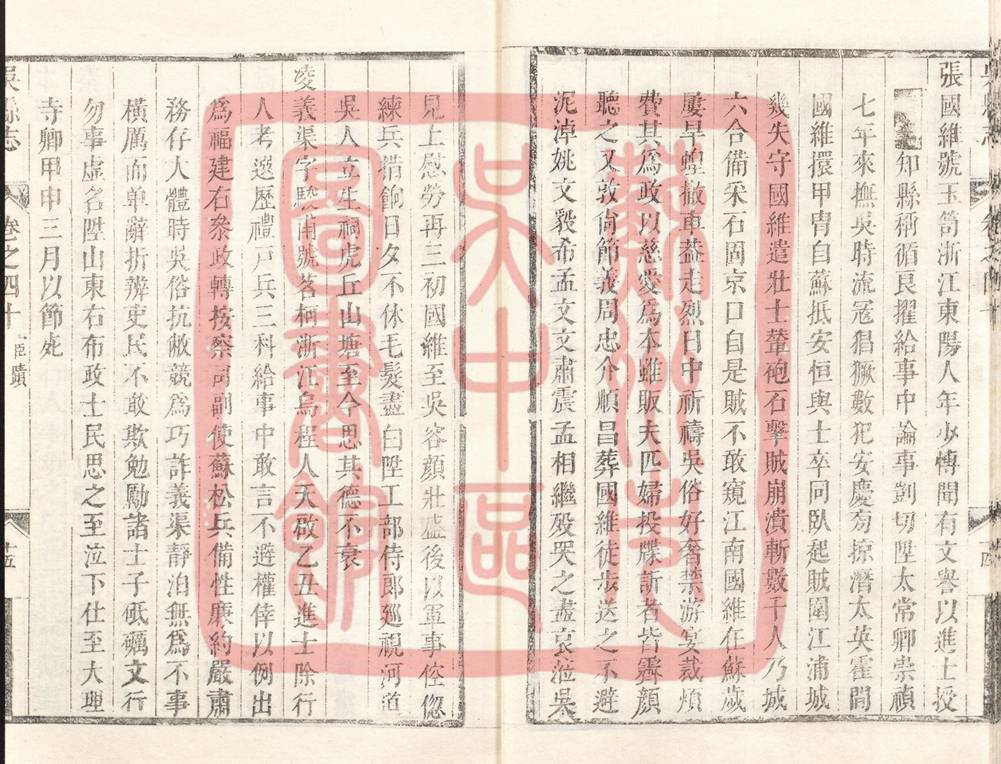 張國維號玉笥浙江東陽人年少博聞有文譽以進士授
知縣稱循良擢給事中論事剴切陞太常卿崇禎
七年來撫吳時流冦猖獗數犯安慶旁掠潛太英霍間
國維擐甲胄自蘇抵安恒與士卒同臥起賊圍江浦城
幾失守國維遣壯士輦砲石擊賊崩潰斬數千人乃城
六合備宋石固京口自是賊不敢窺江南國維在蘇歲
屢旱蝗撤車葢走烈日中祈禱吳俗好奢禁游宴裁煩
費其爲政以慈愛爲本雖販夫匹婦投牒訴者皆霽顏
聽之又敦尚節義周忠介順昌葬國維徒步送之不避
泥淖姚文毅希孟文文肅震孟相繼殁哭之盡哀涖吳
見上慰勞再三初國維至吳容顏壯盛後以軍事倥傯
練兵措餉日夕不休毛髮盡白陞工部侍郎廵視河道
吳人立生祠虎丘山塘至今思其德不衰
凌義渠字駿甫號茗柯浙江烏程人天啟乙丑進士除行
人考選歷禮戸兵三科給事中敢言不避權倖以例出
爲福建右叅政轉按察司副使蘇松兵備性廉約嚴肅
務存大體時吳俗抗敝競爲巧詐義渠靜泊無爲不事
橫厲而單辭折辨吏民不敢欺勉勵諸士子砥礪文行
勿事虛名陞山東右布政士民思之至泣下仕至大理
寺卿甲申三月以節死
吳縣志
卷之四十
臣蹟
蘇州市
吳中區
圖書館